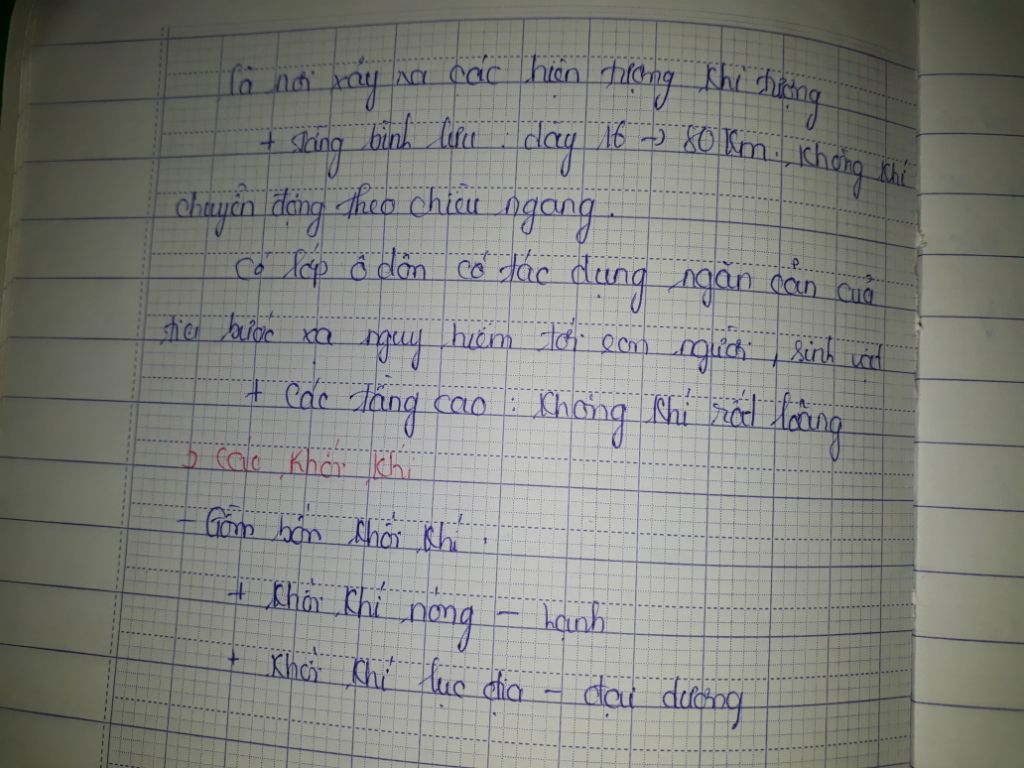 là nơi xảy ra các hiện tượng khí tượng
+ tầng bình lưu : dày 16 → 80 Km. Không khí
chuyển động theo chiều ngang.
Có lớp ô dôn có tác dụng ngăn cản của
tia bước xạ nguy hiểm tới con người, sinh vật
+ Các tầng cao : Không khí rất loãng
b Các khối khí
- Gồm bốn khối khí.
+ Khối khí nóng - lạnh
+ Khối khí lục địa - đại dương